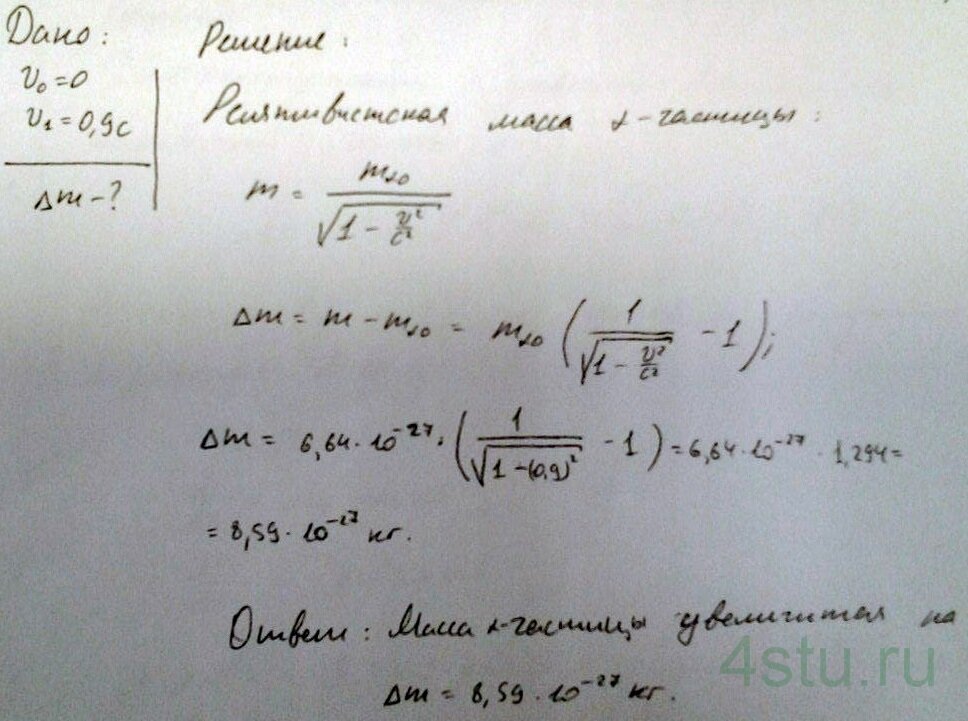 Дано: Решение:
υ₀ = 0
υ₁ = 0,9c
Δm - ?
Релятивистская масса α-частицы:
m = mα₀ / √(1 - υ²/c²)
Δm = m - mα₀ = mα₀ (1 / √(1 - υ²/c²) - 1);
Δm = 6,64·10⁻²⁷·(1 / √(1 - (0,9)²) - 1) = 6,64·10⁻²⁷ · 1,294 =
= 8,59·10⁻²⁷ кг.
Ответ: Масса α-частицы увеличится на
Δm = 8,59·10⁻²⁷ кг.
4stu.ru